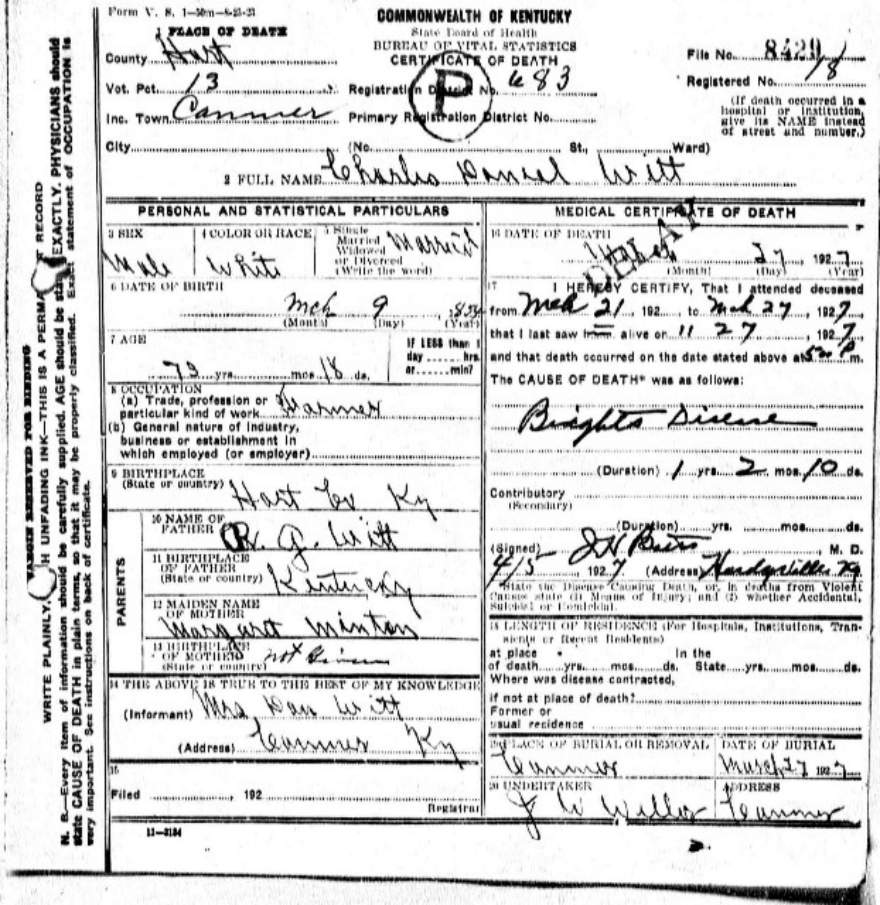 Form V. S. 1-50m-8-25-21
COMMONWEALTH OF KENTUCKY
State Board of Health
BUREAU OF VITAL STATISTICS
CERTIFICATE OF DEATH
1 PLACE OF DEATH
County Hart
File No. 8429
Vot. Pct. 13
Registration District No. 683
Registered No. 18
P
Inc. Town Canmer
Primary Registration District No.
(If death occurred in a hospital or institution, give its NAME instead of street and number.)
City (No. St., Ward)
2 FULL NAME Charles Daniel Witt
PERSONAL AND STATISTICAL PARTICULARS
3 SEX Male
4 COLOR OR RACE White
5 Single Married Widowed or Divorced (Write the word) Married
6 DATE OF BIRTH
Mch 9
(Month) (Day) (Year)
7 AGE
yrs. mos. 18 ds.
IF LESS than 1 day hrs. or min?
8 OCCUPATION
(a) Trade, profession or particular kind of work Farmer
(b) General nature of industry, business or establishment in which employed (or employer)
9 BIRTHPLACE
(State or country) Hart Co Ky
PARENTS
10 NAME OF FATHER G. Witt
11 BIRTHPLACE OF FATHER (State or country) Kentucky
12 MAIDEN NAME OF MOTHER Margaret Minton
13 BIRTHPLACE OF MOTHER (State or country) not Given
14 THE ABOVE IS TRUE TO THE BEST OF MY KNOWLEDGE
(Informant) Mrs Dan Witt
(Address) Canmer Ky
15
Filed , 192
Registrar
11-3184
MEDICAL CERTIFICATE OF DEATH
DELAY
16 DATE OF DEATH
27 , 1927
(Month) (Day) (Year)
17 I HEREBY CERTIFY, That I attended deceased
from Mch 21 , 192 , to Mch 27 , 1927,
that I last saw him alive on 11 27 , 1927,
and that death occurred on the date stated above at P m.
The CAUSE OF DEATH* was as follows:
Brights Disease
(Duration) 1 yrs. 2 mos. 10 ds.
Contributory
(Secondary)
(Duration) yrs. mos. ds.
(Signed) J H , M. D.
4/5 , 1927 (Address) Hardyville Ky
*State the Disease Causing Death, or, in deaths from Violent Causes state (1) Means of Injury; and (2) whether Accidental, Suicidal or Homicidal.
18 LENGTH OF RESIDENCE (For Hospitals, Institutions, Transients or Recent Residents)
at place of death yrs. mos. ds. In the State yrs. mos. ds.
Where was disease contracted,
if not at place of death?
Former or
usual residence
19 PLACE OF BURIAL OR REMOVAL Canmer
DATE OF BURIAL March 27 1927
20 UNDERTAKER J W
ADDRESS Canmer
MARGIN RESERVED FOR BINDING
WRITE PLAINLY, UNFADING INK—THIS IS A RECORD
N. B.—Every item of information should be carefully supplied. AGE should be stated EXACTLY. PHYSICIANS should
state CAUSE OF DEATH in plain terms, so that it may be properly classified. Exact statement of OCCUPATION is
very important. See instructions on back of certificate.